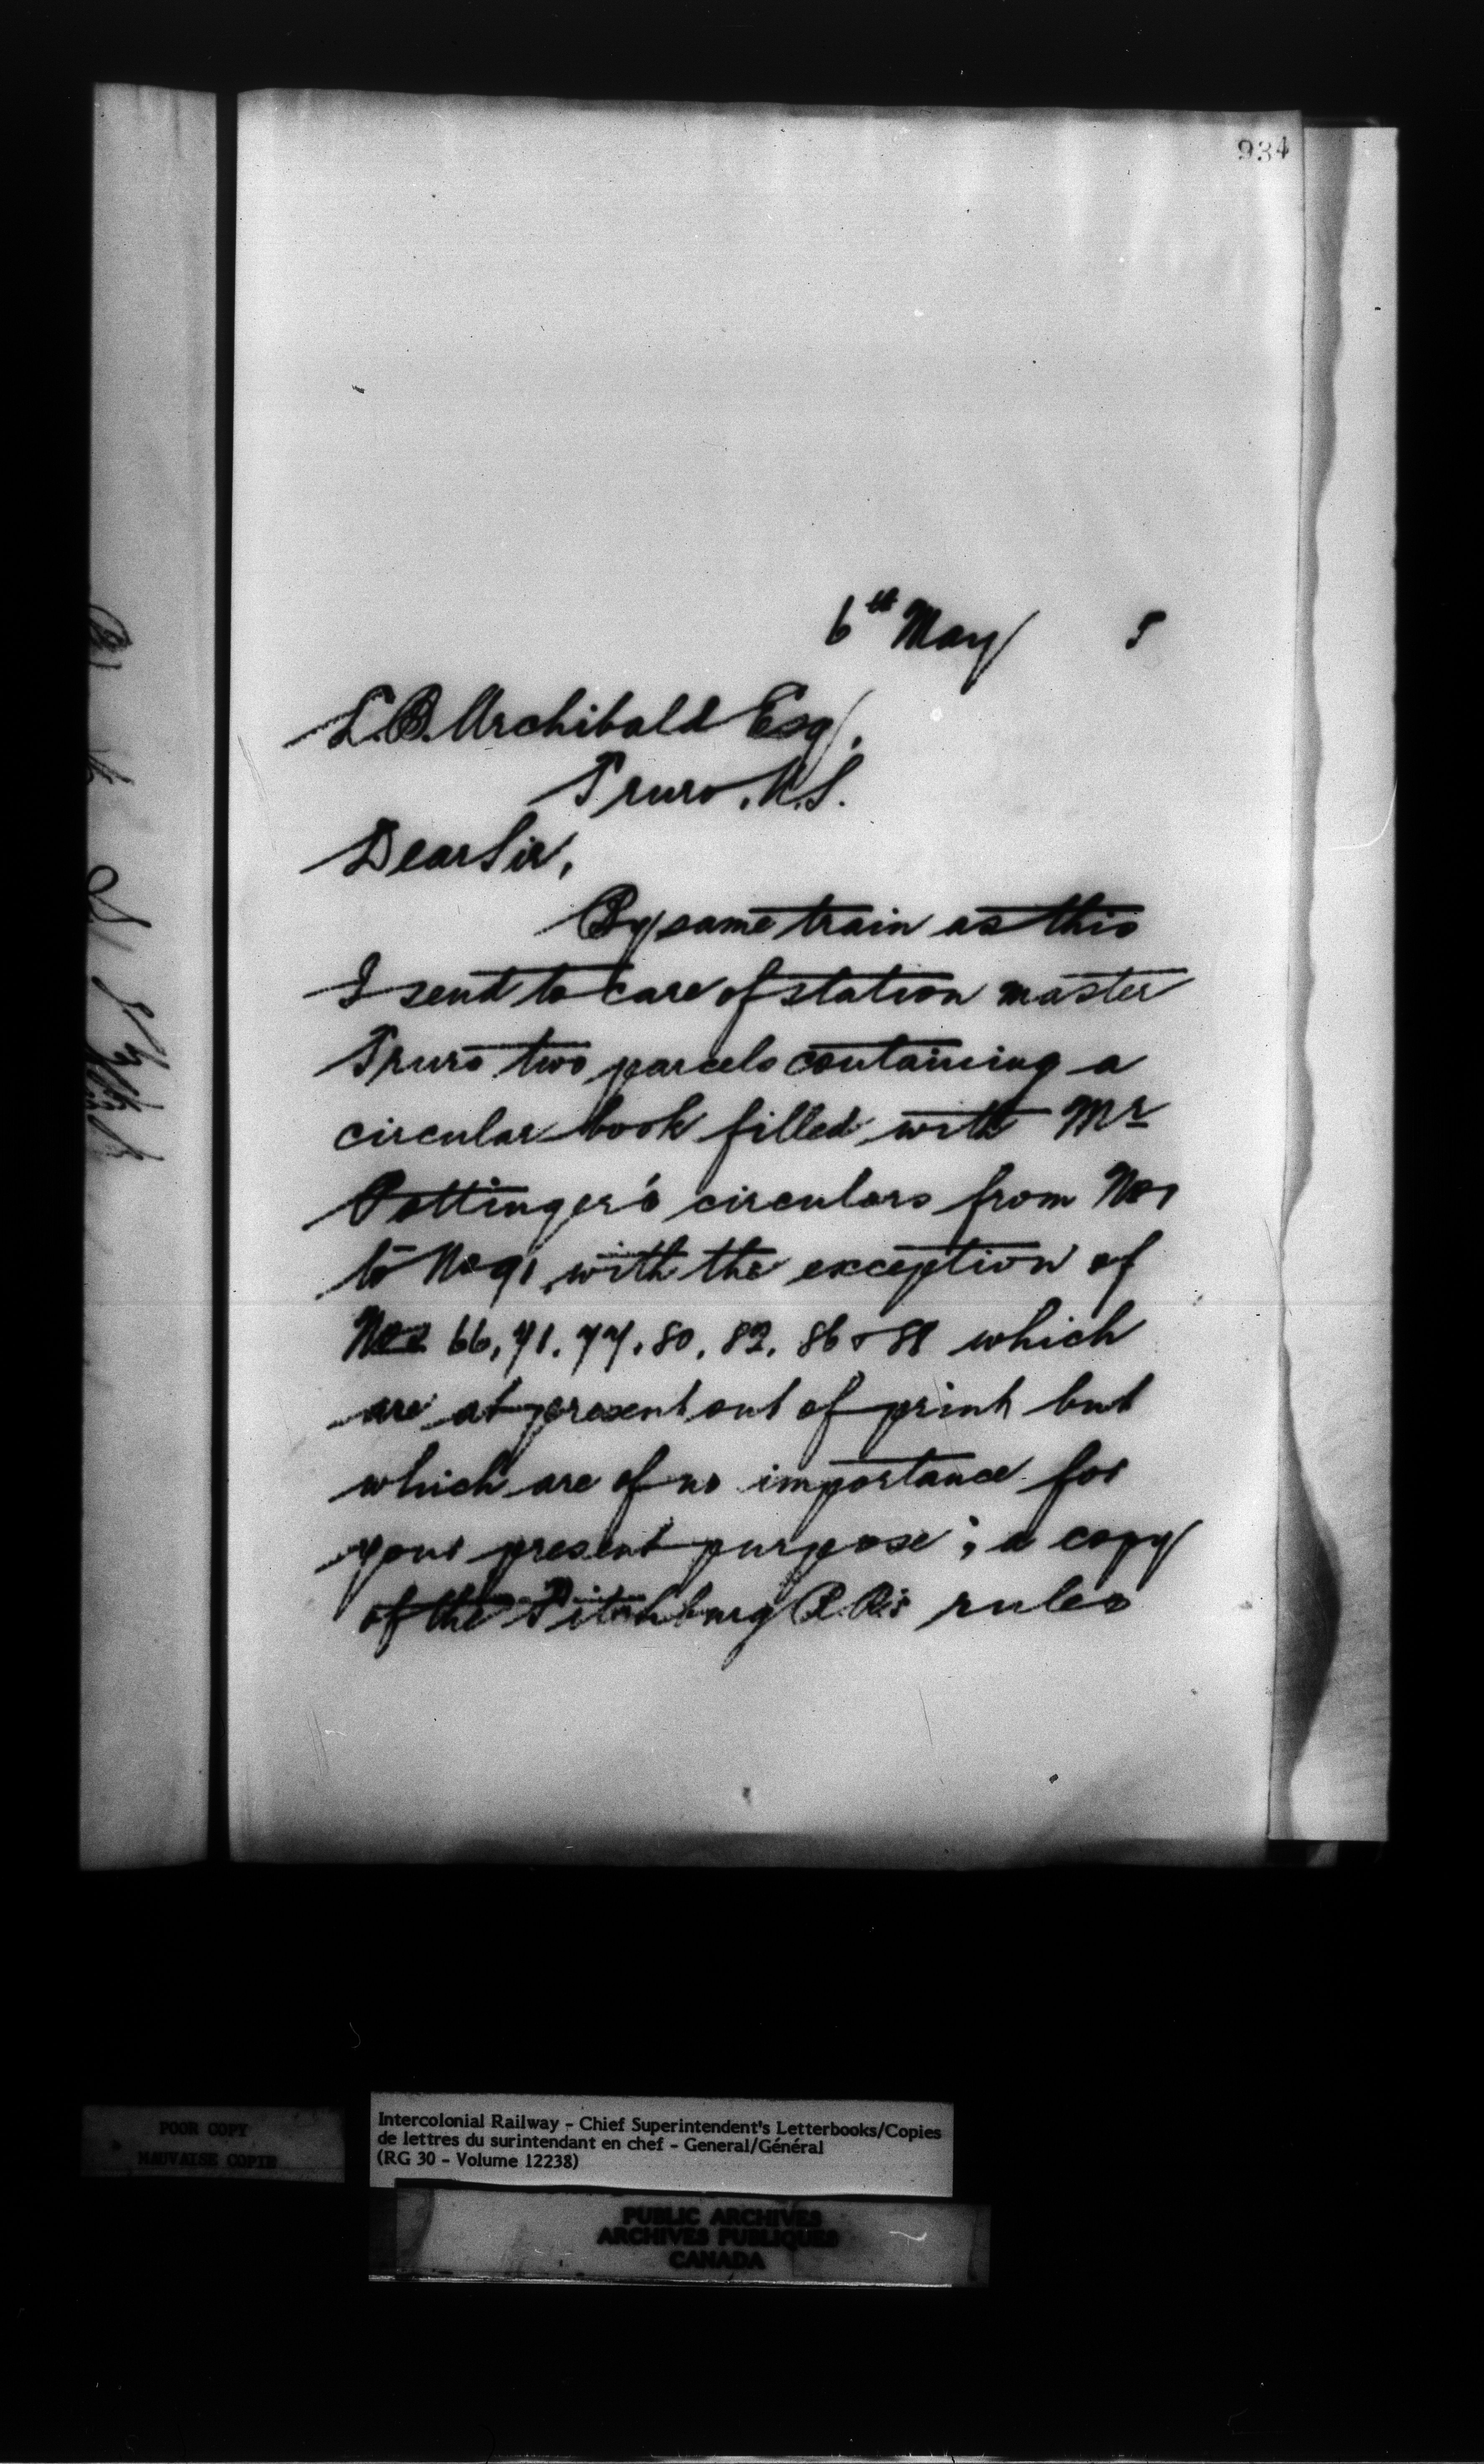 934
6th May 5
L.B. Archibald Esq,
Truro, N.S.
Dear Sir,
By same train as this
I send to care of station master
Truro two parcels containing a
circular book filled with Mr
Pottinger's circulars from No 1
to No 91, with the exception of
Nos 66, 71, 77, 80, 82, 86 & 88 which
are at present out of print but
which are of no importance for
your present purpose; a copy
of the R.R's rules
POOR COPY
MAUVAISE COPIE
Intercolonial Railway - Chief Superintendent's Letterbooks/Copies
de lettres du surintendant en chef - General/Général
(RG 30 - Volume 12238)
PUBLIC ARCHIVES
ARCHIVES PUBLIQUES
CANADA